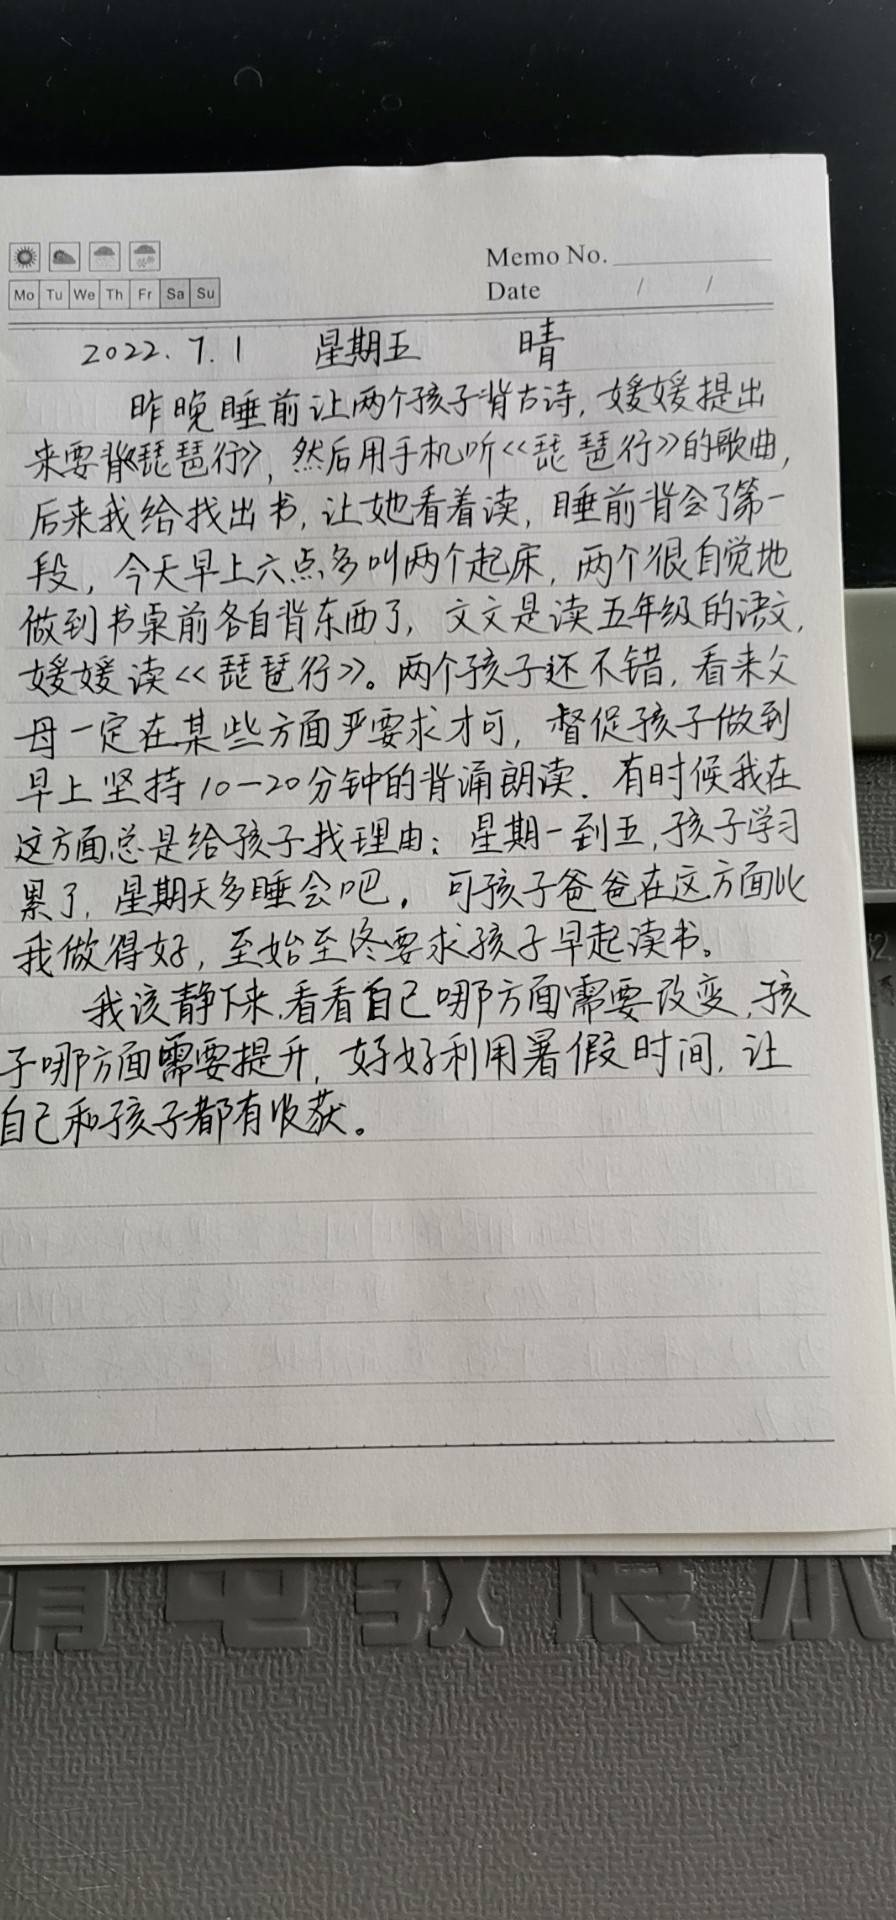 Memo No.
Mo Tu We Th Fr Sa Su
Date / /
2022.7.1 星期五 晴
昨晚睡前让两个孩子背古诗,媛媛提出
来要背《琵琶行》,然后用手机听《琵琶行》的歌曲,
后来我给找出书,让她看着读,睡前背会了第一
段,今天早上六点多叫两个起床,两个很自觉地
做到书桌前各自背东西了,文文是读五年级的语文,
媛媛读《琵琶行》。两个孩子还不错,看来父
母一定在某些方面严要求才可,督促孩子做到
早上坚持10-20分钟的背诵朗读.有时候我在
这方面总是给孩子找理由:星期一到五,孩子学习
累了,星期天多睡会吧,可孩子爸爸在这方面比
我做得好,至始至终要求孩子早起读书。
我该静下来,看看自己哪方面需要改变,孩
子哪方面需要提升,好好利用暑假时间,让
自己和孩子都有收获。